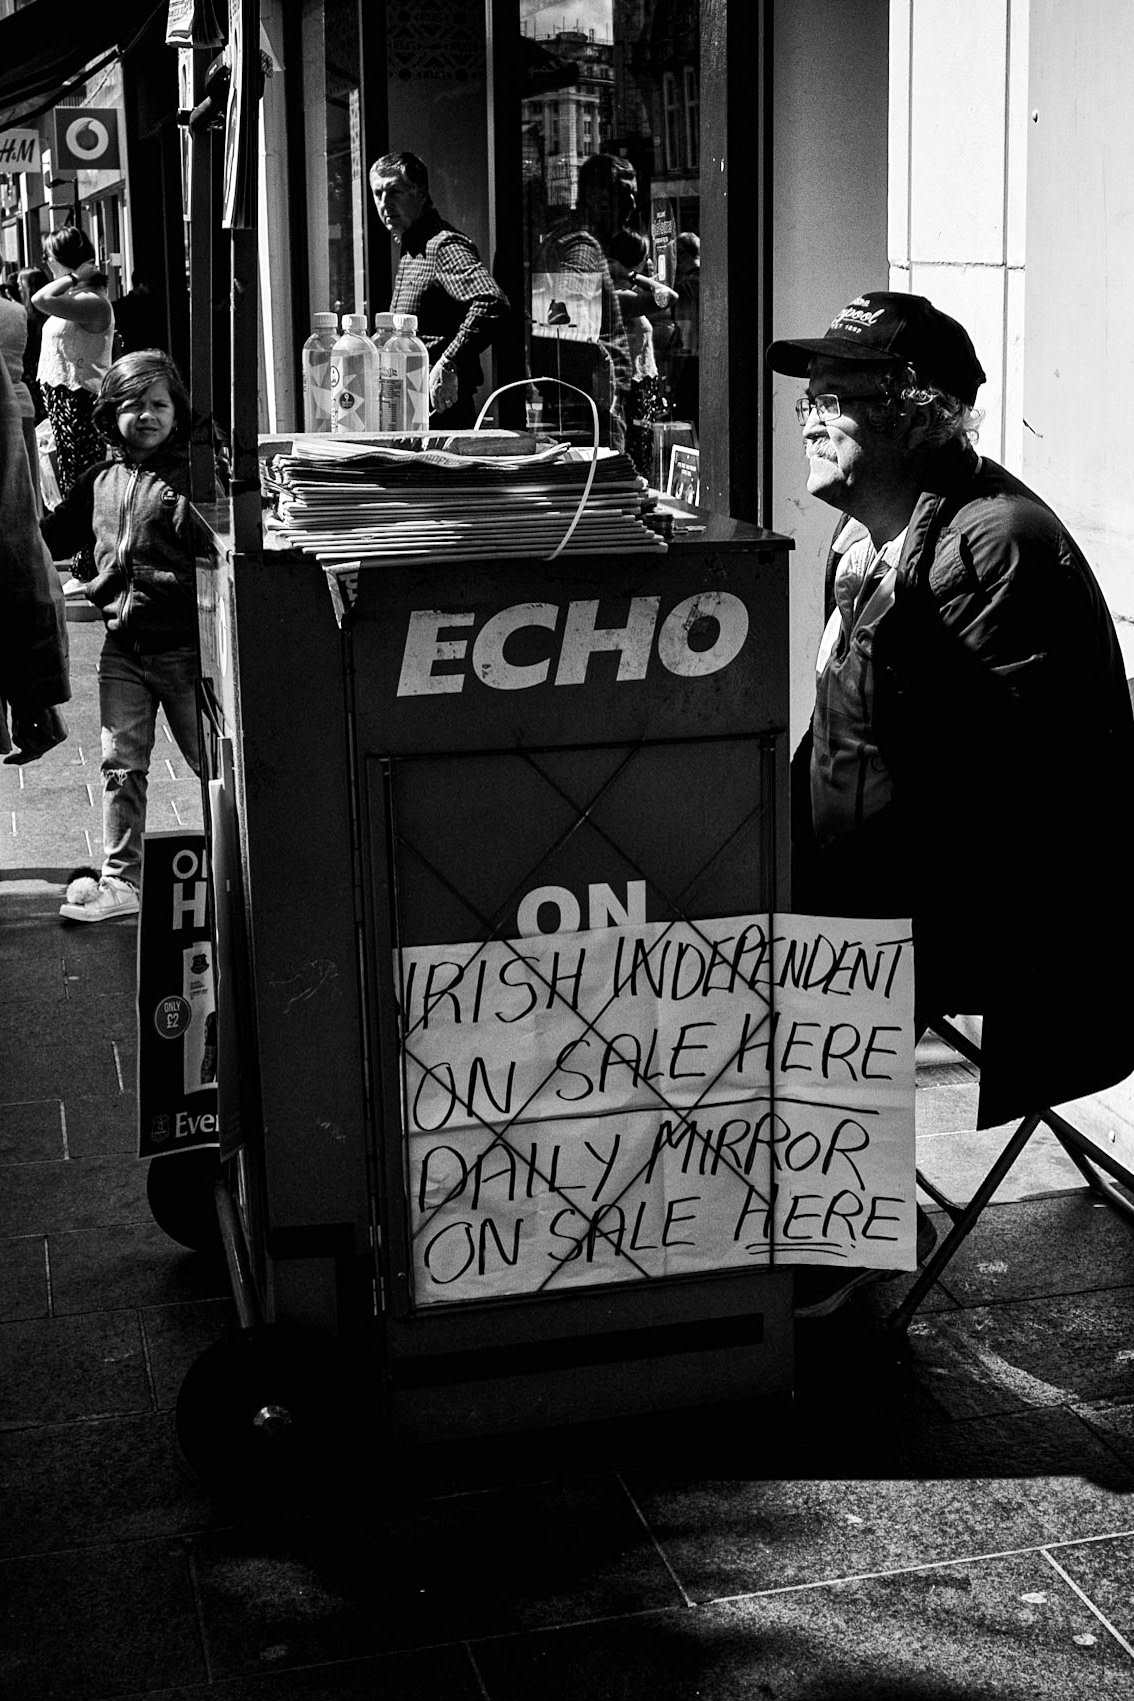 H&M
ECHO
ON
IRISH INDEPENDENT
ON SALE HERE
DAILY MIRROR
ON SALE HERE
ONLY
£2